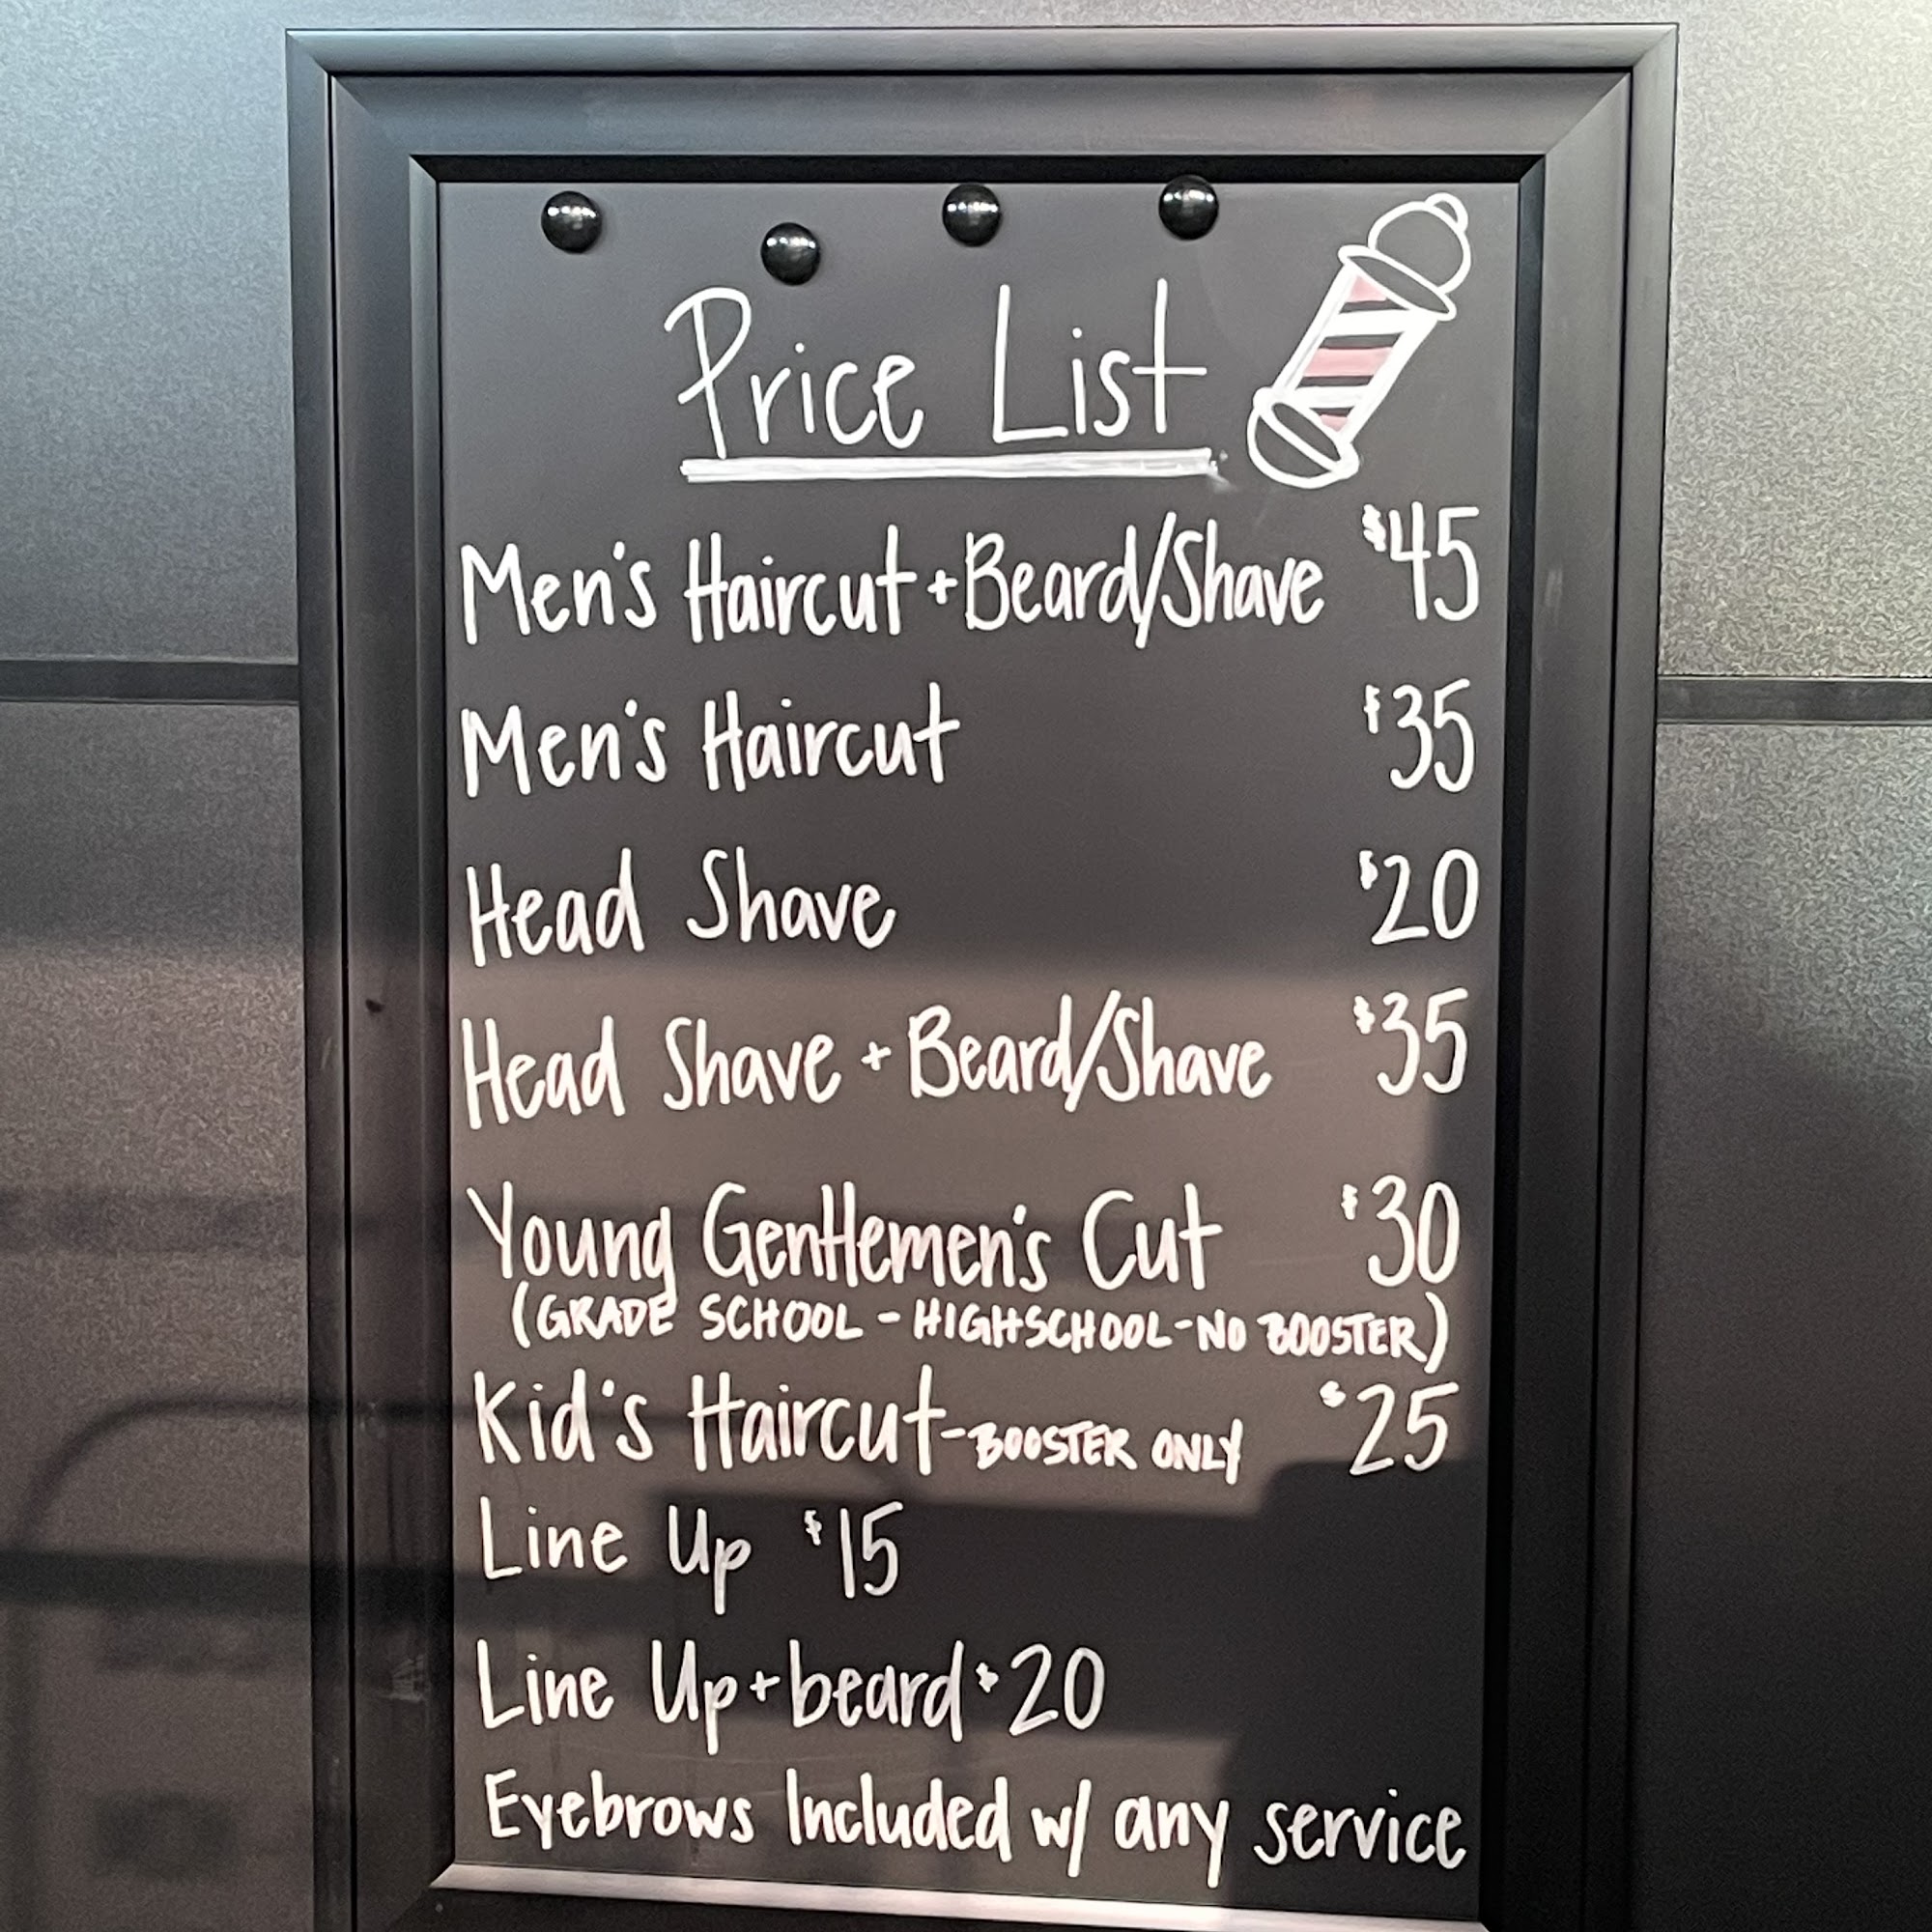 Price List
Men's Haircut + Beard/Shave $45
Men's Haircut $35
Head Shave $20
Head Shave + Beard/Shave $35
Young Gentlemen's Cut $30
(GRADE SCHOOL - HIGHSCHOOL - NO BOOSTER)
Kid's Haircut - BOOSTER ONLY $25
Line Up $15
Line Up + beard $20
Eyebrows Included w/ any service